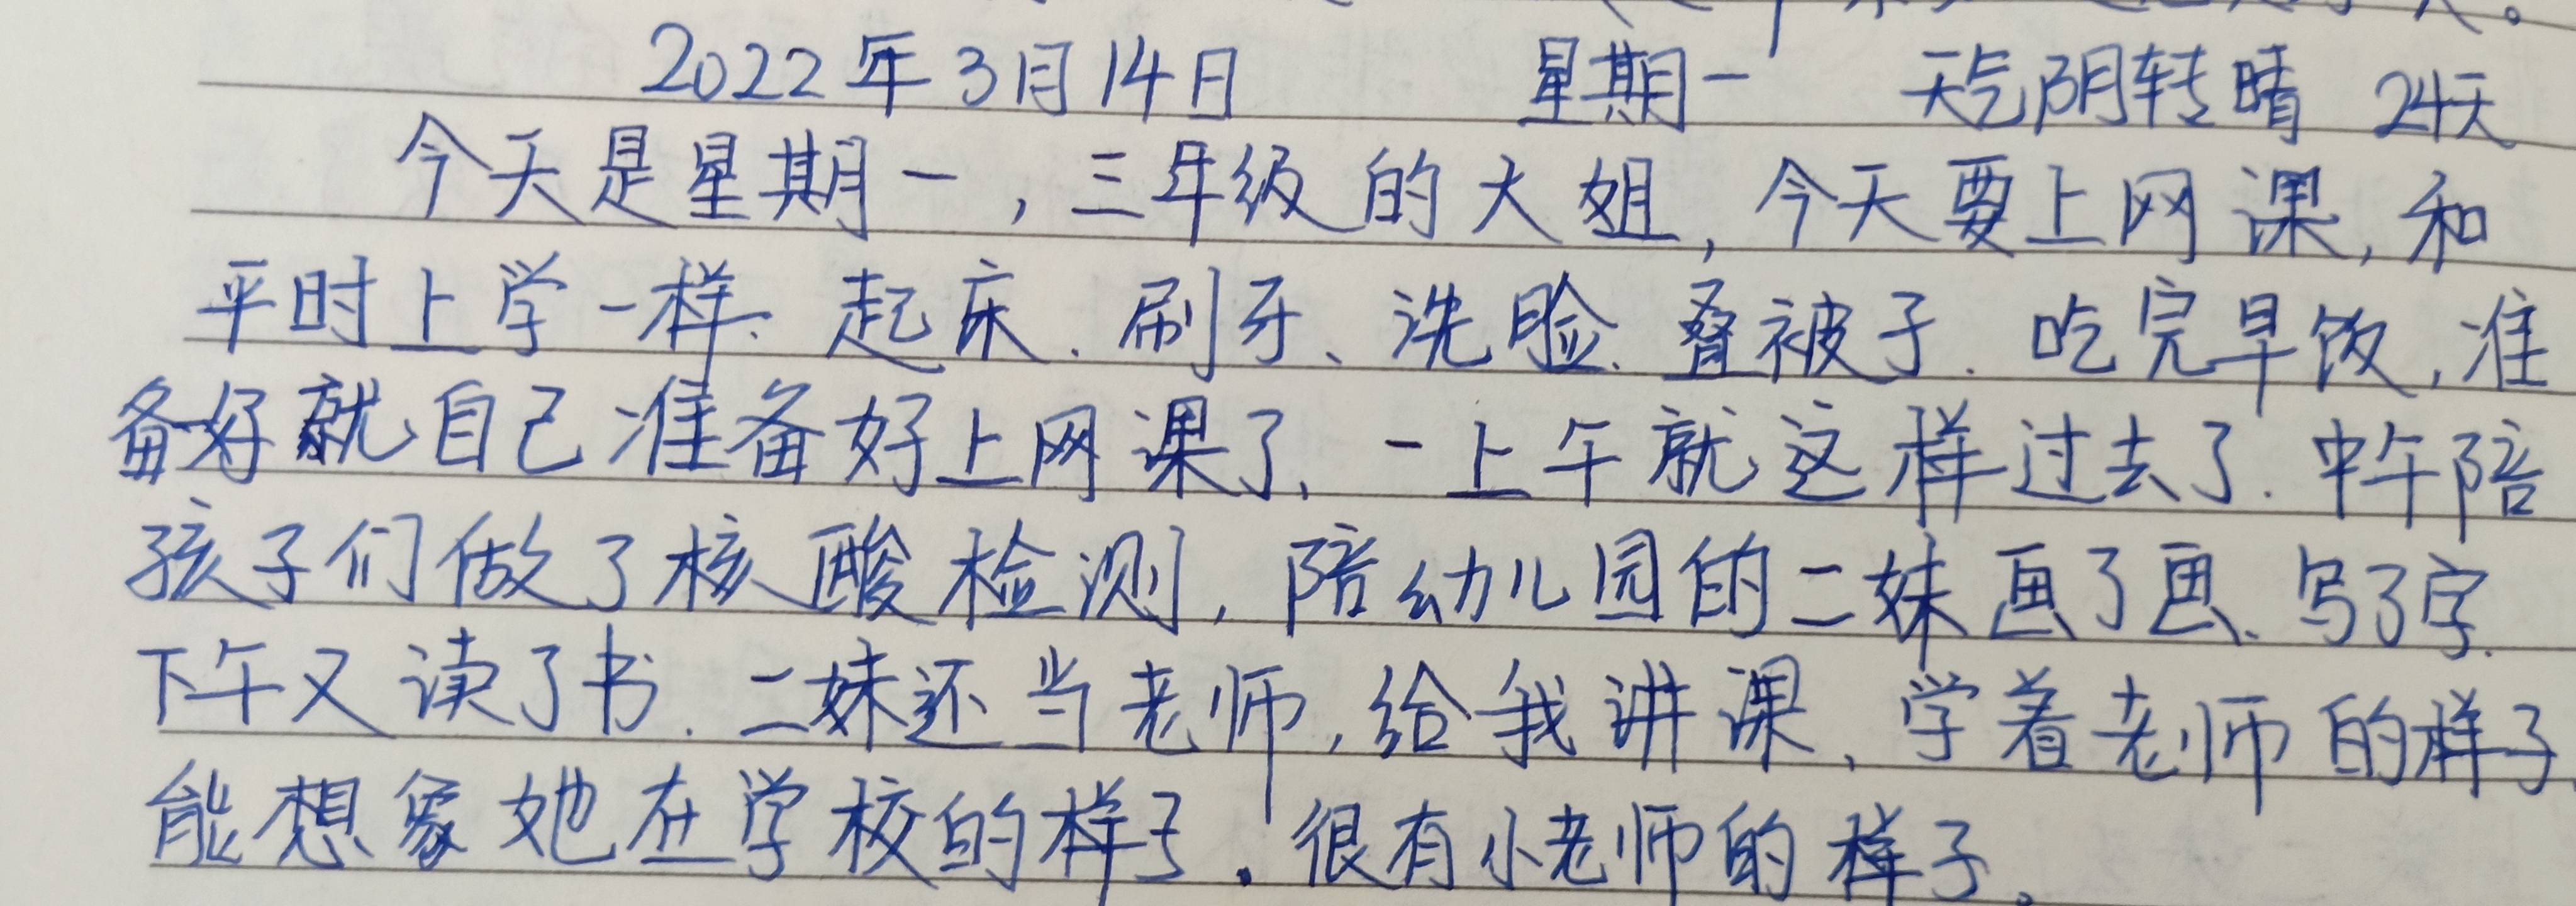 2022年3月14日 星期一 天气阴转晴 24天
今天是星期一，三年级的大姐，今天要上网课，和
平时上学一样、起床、刷牙、洗脸、叠被子、吃完早饭，准
备好就自己准备好上网课了，一上午就这样过去了．中午陪
孩子们做了核酸检测，陪幼儿园的二妹画了画、写了字．
下午又读了书．二妹还当老师，给我讲课，学着老师的样子
能想象她在学校的样子．很有小老师的样子。